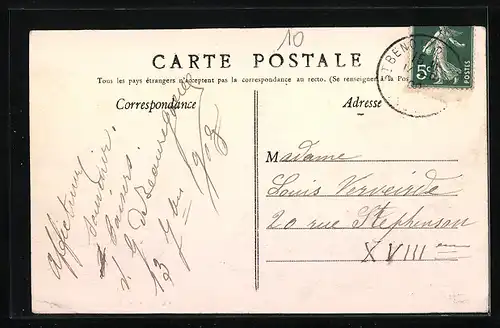 10
CARTE POSTALE
Tous les pays étrangers n'acceptent pas la correspondance au recto. (Se renseigner à la Pos
Correspondance
Adresse
5c
POSTES
BEN
Madame
Louis Verveirde
20 rue Stephenson
XVIII eme
affectueux
Souvenir.
Baisers.
G. de Beauregard
13 7